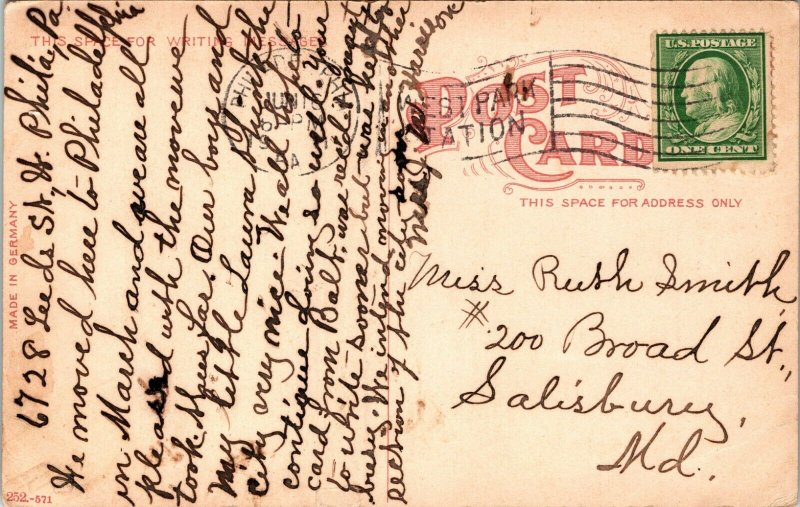 THIS SPACE FOR WRITING MESSAGES
6728 Leeds St. W. Phila, Pa.
We moved here to Philadelphia
in March and we are all
pleased with the move we
took thus far. Our boy and
my little Laura think the
city very nice. We all hope
continue doing so well. Your
card from Balt. was rec'd. meant
to write sooner but was kept so
busy. We intend moving to another
section of the city soon.
PHILADELPHIA
JUN 16
PA
WEST PARK
STATION
U.S. POSTAGE
ONE CENT
POST
CARD
THIS SPACE FOR ADDRESS ONLY
Miss Ruth Smith,
# 200 Broad St.,
Salisbury,
Md.
MADE IN GERMANY
252.-571